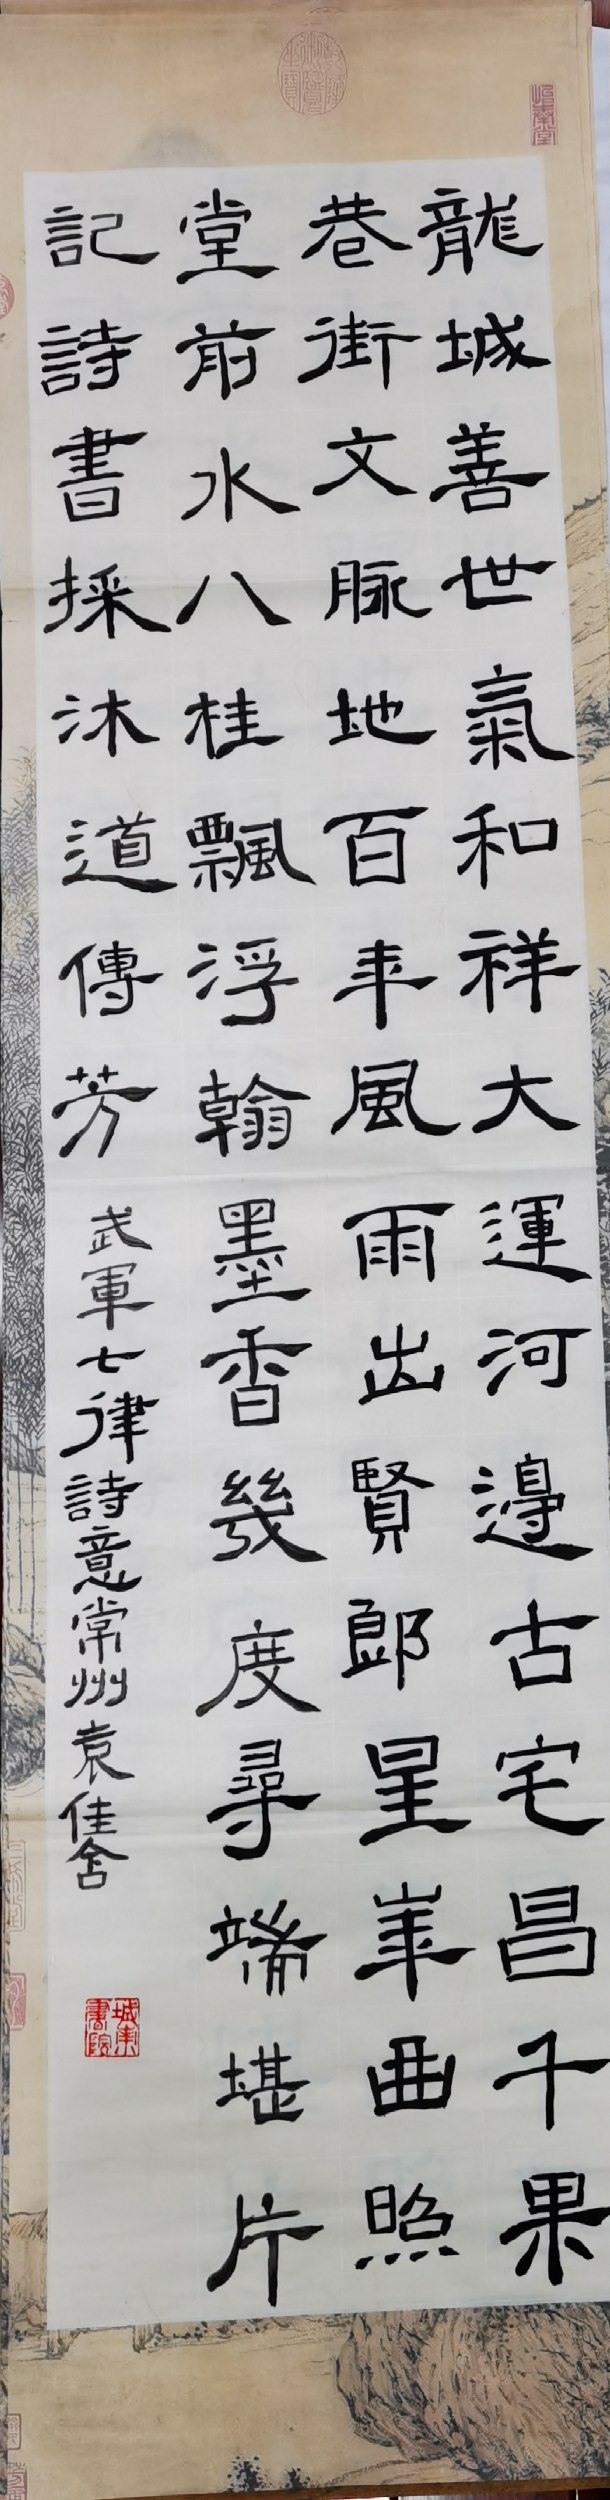 龍城善世氣和祥大運河邊古宅昌千果
巷街文脉地百年風雨出賢郎星峯曲照
堂前水八桂飄浮翰墨香幾度尋端堪片
記詩書採沐道傳芳
武軍七律詩意常州袁佳
城東書院